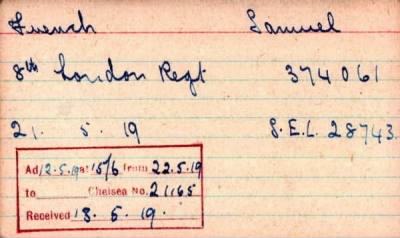 French Samuel
8th London Regt 374061
21. 5. 19 S.E.L. 28743.
Ad 12.5.19 at 15/6 from 22.5.19
to Chelsea No. 21165
Received 13. 5. 19.